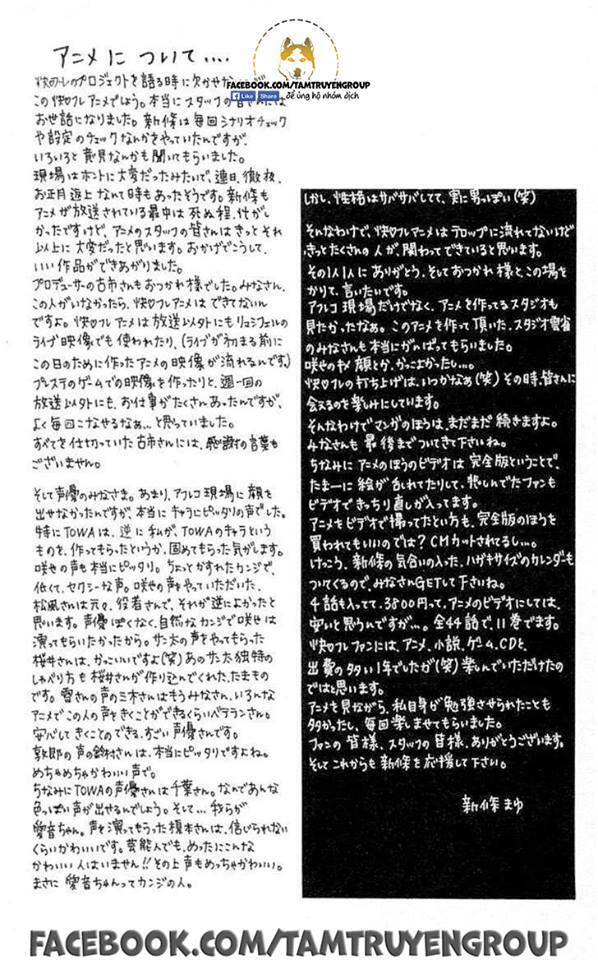 アニメについて....
FACEBOOK.COM/TAMTRUYENGROUP
Like Share để ủng hộ nhóm dịch
快ワレのプロジェクトを語る時に欠かせな
この快ワレアニメでしょう。本当にスタッフの皆さんには
お世話になりました。新條は毎回シナリオチェック
や設定のチェックなんかをやっていたんですが、
いろいろと意見なんかも聞いてもらいました。
現場はホントに大変だったみたいで、連日、徹夜、
お正月返上なんて時もあったそうです。新條も
アニメが放送されている最中は死ぬ程、忙がし
かったですけど、アニメのスタッフの皆さんはきっとそれ
以上に大変だったと思います。おかげでこうして、
いい作品ができあがりました。
プロデューサーの古市さんもおつかれ様でした。みなさん、
この人がいなかったら、快ワレアニメはできてないん
ですよ。快ワレアニメは放送以外にもリュシフェルの
ライブ映像でも使われたり、(ライブが初まる前に
この日のために作ったアニメの映像が流れるんです。)
プレステのゲームでの映像を作ったりと、週一回の
放送以外にも、お仕事がたくさんあったんですが、
よく毎回こなせるなぁ...と思っていました。
すべてを仕切っていた古市さんには、感謝の言葉も
ございません。
そして声優のみなさま。あまり、アフレコ現場に顔を
出せなかったんですが、本当にキャラにピッタリの声でした。
特にTOWAは、逆に私が、TOWAのキャラという
ものを、作ってもらったというか、固めてもらった気がします。
咲也の声も本当にピッタリ。ちょっとかすれたカンジで、
低くて、セクシーな声。咲也の声をやっていただいた、
松風さんは元々、役者さんで、それが逆によかったと
思います。声優っぽくなく、自然なカンジで咲也は
演ってもらいたかったから。サン太の声をやってもらった
桜井さんは、かっこいいですよ(笑)あのサン太独特の
しゃべり方も桜井さんが作り込んでくれた、たまもの
です。雪さんの声の三木さんはもうみなさん、いろんな
アニメでこの人の声をきくことができるくらいベテランさん。
安心してきくことのできる、すごい声優さんです。
敦郎の声の鈴村さんは、本当にピッタリですよね。
めちゃめちゃかわいい声で。
ちなみにTOWAの声優さんは千葉さん。なんであんな
色っぽい声が出せるんでしょう。そして...我らが
愛音ちゃん。声を演ってもらった榎本さんは、信じられない
くらいかわいいです。芸能人でも、めったにこんな
かわいい人はいません!!その上声もめっちゃかわいい。
まさに愛音ちゃんってカンジの人。
しかし、性格はサバサバしてて、実に男っぽい(笑)
そんなわけで、快ワレアニメはテロップに流れてないけど
きっとたくさんの人が、関わってできていると思います。
その1人1人にありがとう、そしておつかれ様と、この場を
かりて、言いたいです。
アフレコ現場だけでなく、アニメを作ってるスタジオも
見たかったなぁ。このアニメを作って頂いた、スタジオ雲雀
のみなさんも本当にがんばってもらいました。
咲也のキメ顔とか、かっこよかったし...。
快ワレの打ち上げは、いつかなぁ(笑)その時、皆さんに
会えるのを楽しみにしています。
そんなわけでマンガのほうは、まだまだ続きますよ。
みなさんも最後までついてきて下さいね。
ちなみにアニメのほうのビデオは完全版ということで、
たまーに絵が乱れてたりして、悲しんでたファンも
ビデオできっちり直しが入ってます。
アニメをビデオで撮ってたという方も、完全版のほうを
買われてもいいのでは?CMカットされてるし...。
けっこう、新條の気合いの入った、ハガキサイズのカレンダーも
ついてくるので、みなさんGETして下さいね。
4話も入ってて、3800円って、アニメのビデオにしては、
安いと思うんですが...。全44話で、11巻でます。
快ワレファンには、アニメ、小説、ゲーム、CDと、
出費の多い1年でしたが(笑)楽しんでいただけたの
ではと思います。
アニメを見ながら、私自身が勉強させられたことも
多かったし、毎回楽しませてもらいました。
ファンの皆様、スタッフの皆様、ありがとうございます。
そしてこれからも新條を応援して下さい。
新條まゆ
FACEBOOK.COM/TAMTRUYENGROUP